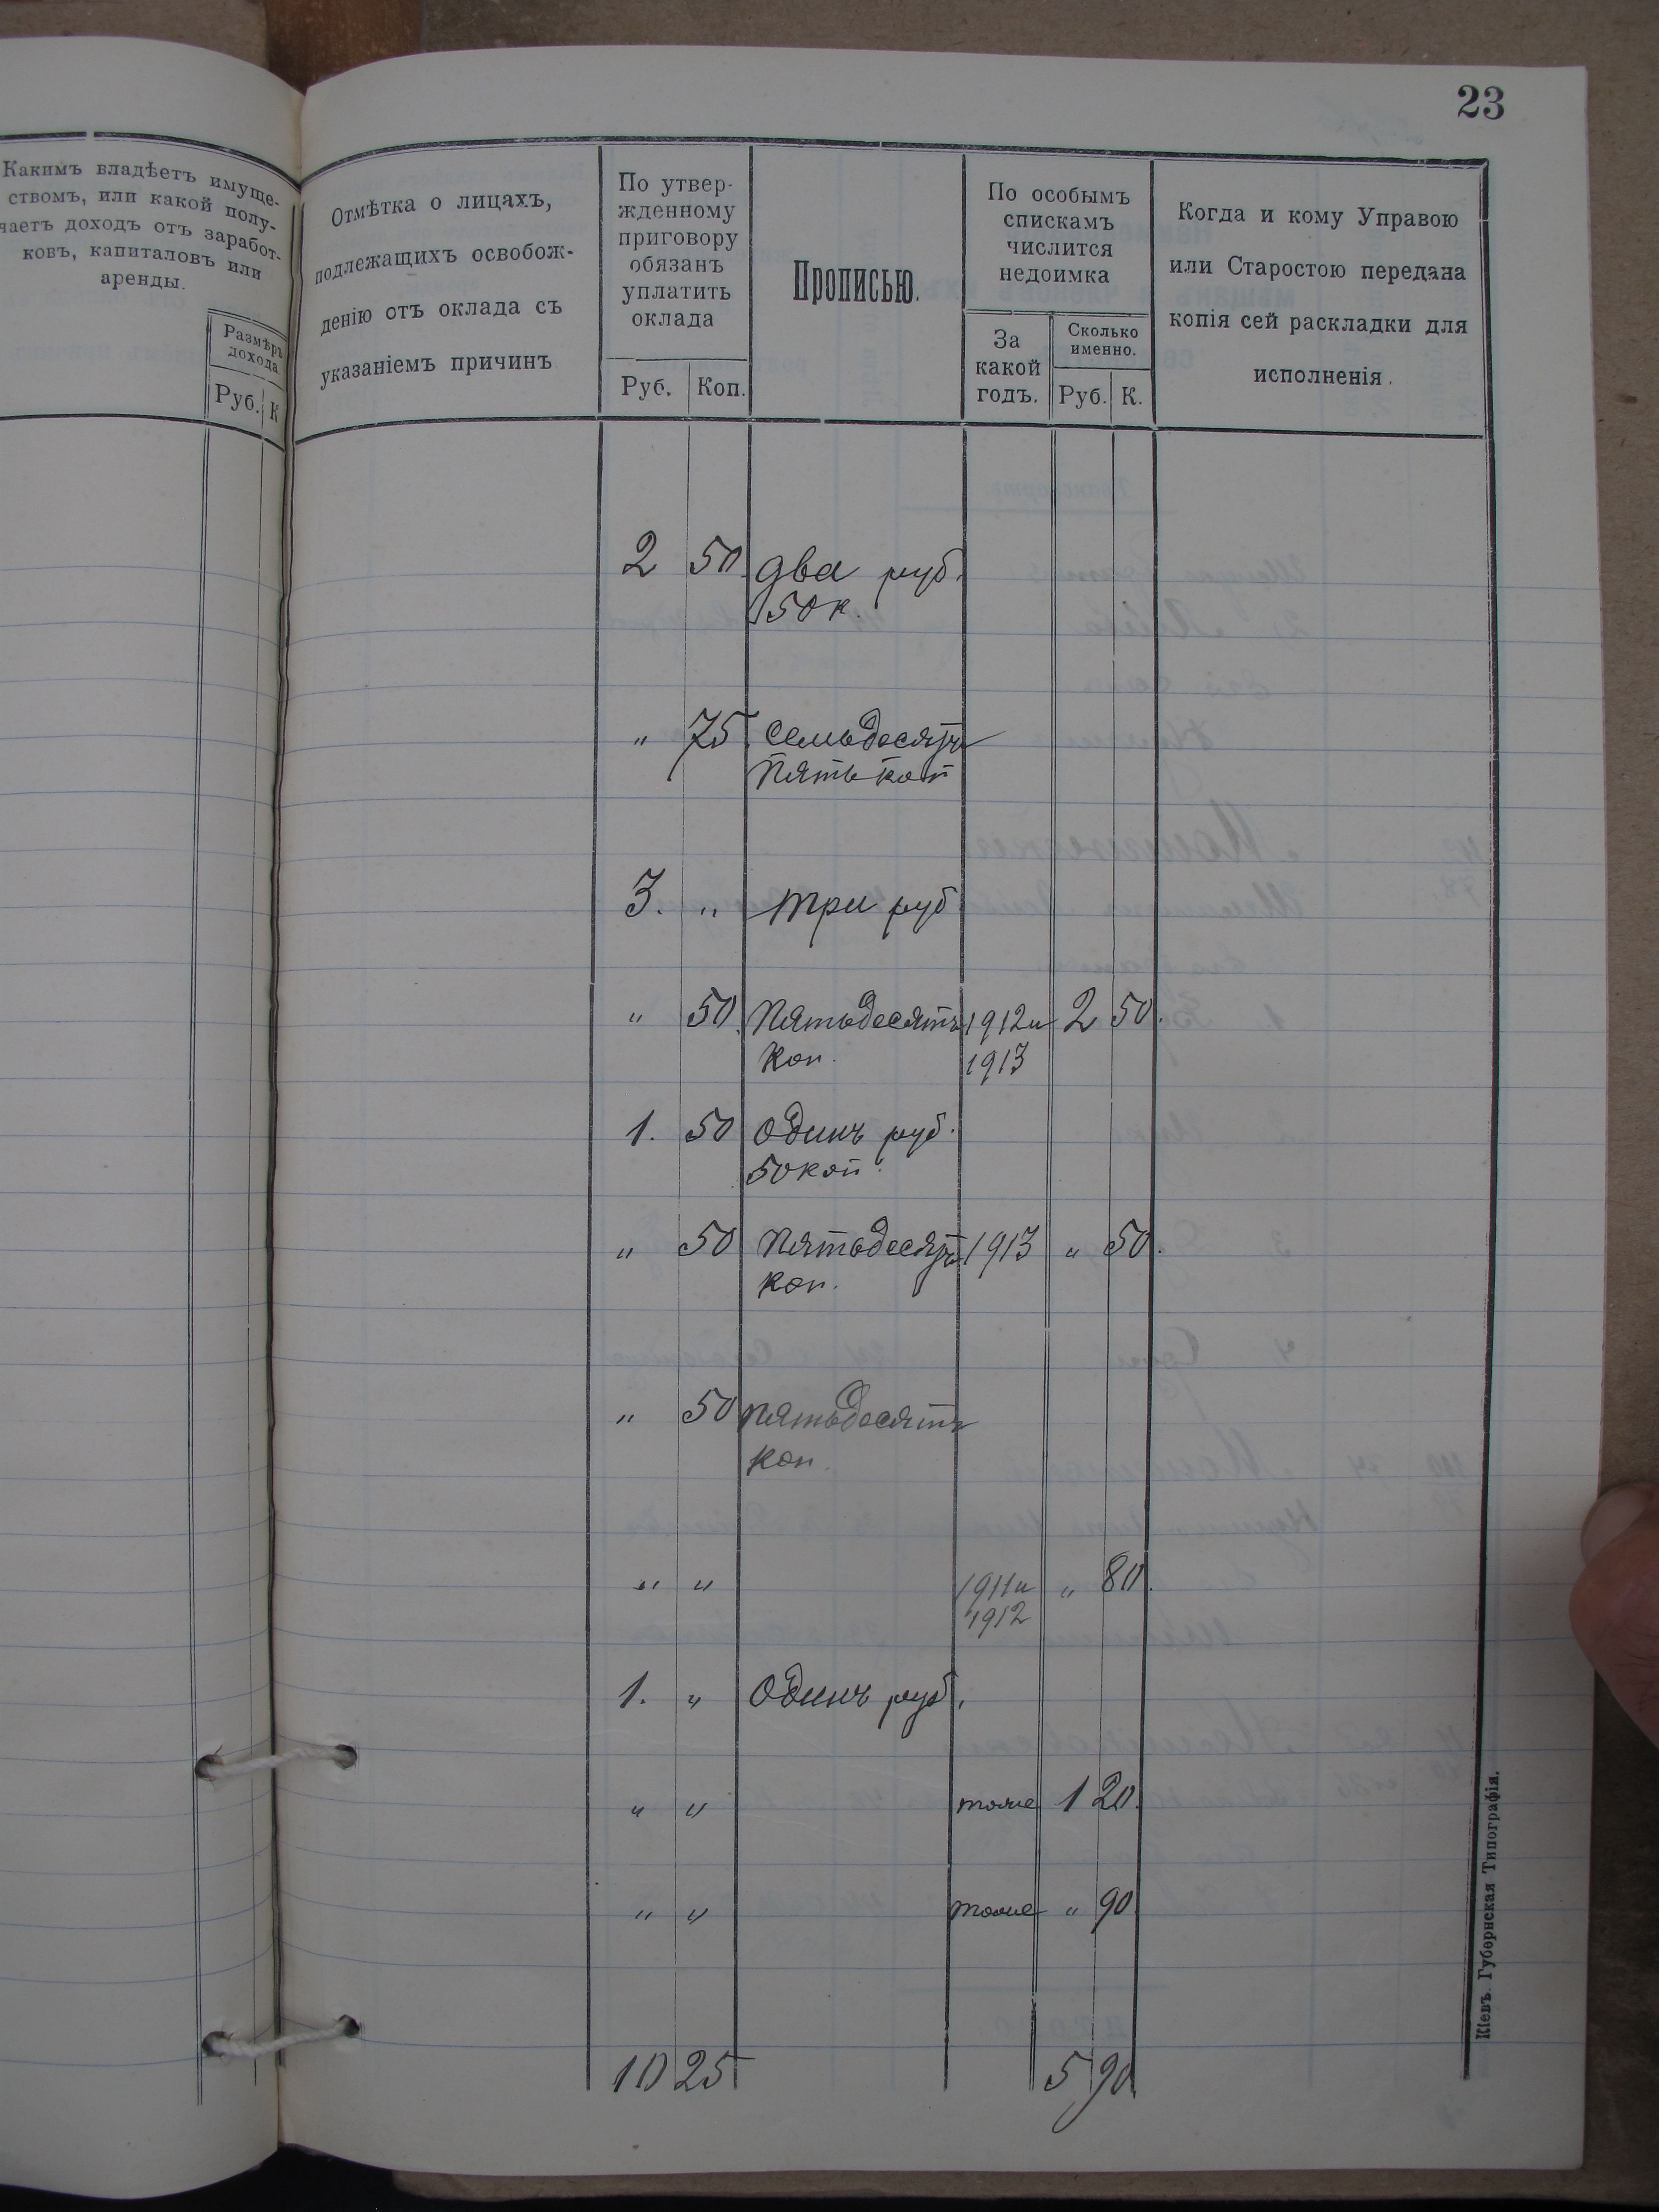 23
Какимъ владѣетъ имуще-
ствомъ, или какой полу-
чаетъ доходъ отъ заработ-
ковъ, капиталовъ или
аренды.
Размѣръ
дохода
Руб. К
Отмѣтка о лицахъ,
подлежащихъ освобож-
денію отъ оклада съ
указаніемъ причинъ
По утвер-
жденному
приговору
обязанъ
уплатить
оклада
Руб. Коп.
Прописью.
По особымъ
спискамъ
числится
недоимка
За
какой
годъ.
Сколько
именно.
Руб. К.
Когда и кому Управою
или Старостою передана
копія сей раскладки для
исполненія.
2 50 два руб.
50 к.
" 75 семьдесятъ
пять коп
3. " три руб
" 50 пятьдесятъ 1912 и 2 50.
коп. 1913
1. 50 одинъ руб.
50 коп.
" 50 пятьдесятъ 1913 " 50.
коп.
" 50 пятьдесятъ
коп.
" " 1911 и " 80.
1912
1. " одинъ руб.
" " тоже 1 20.
" " тоже " 90.
10 25 5 90
Кіевъ. Губернская Типографія.